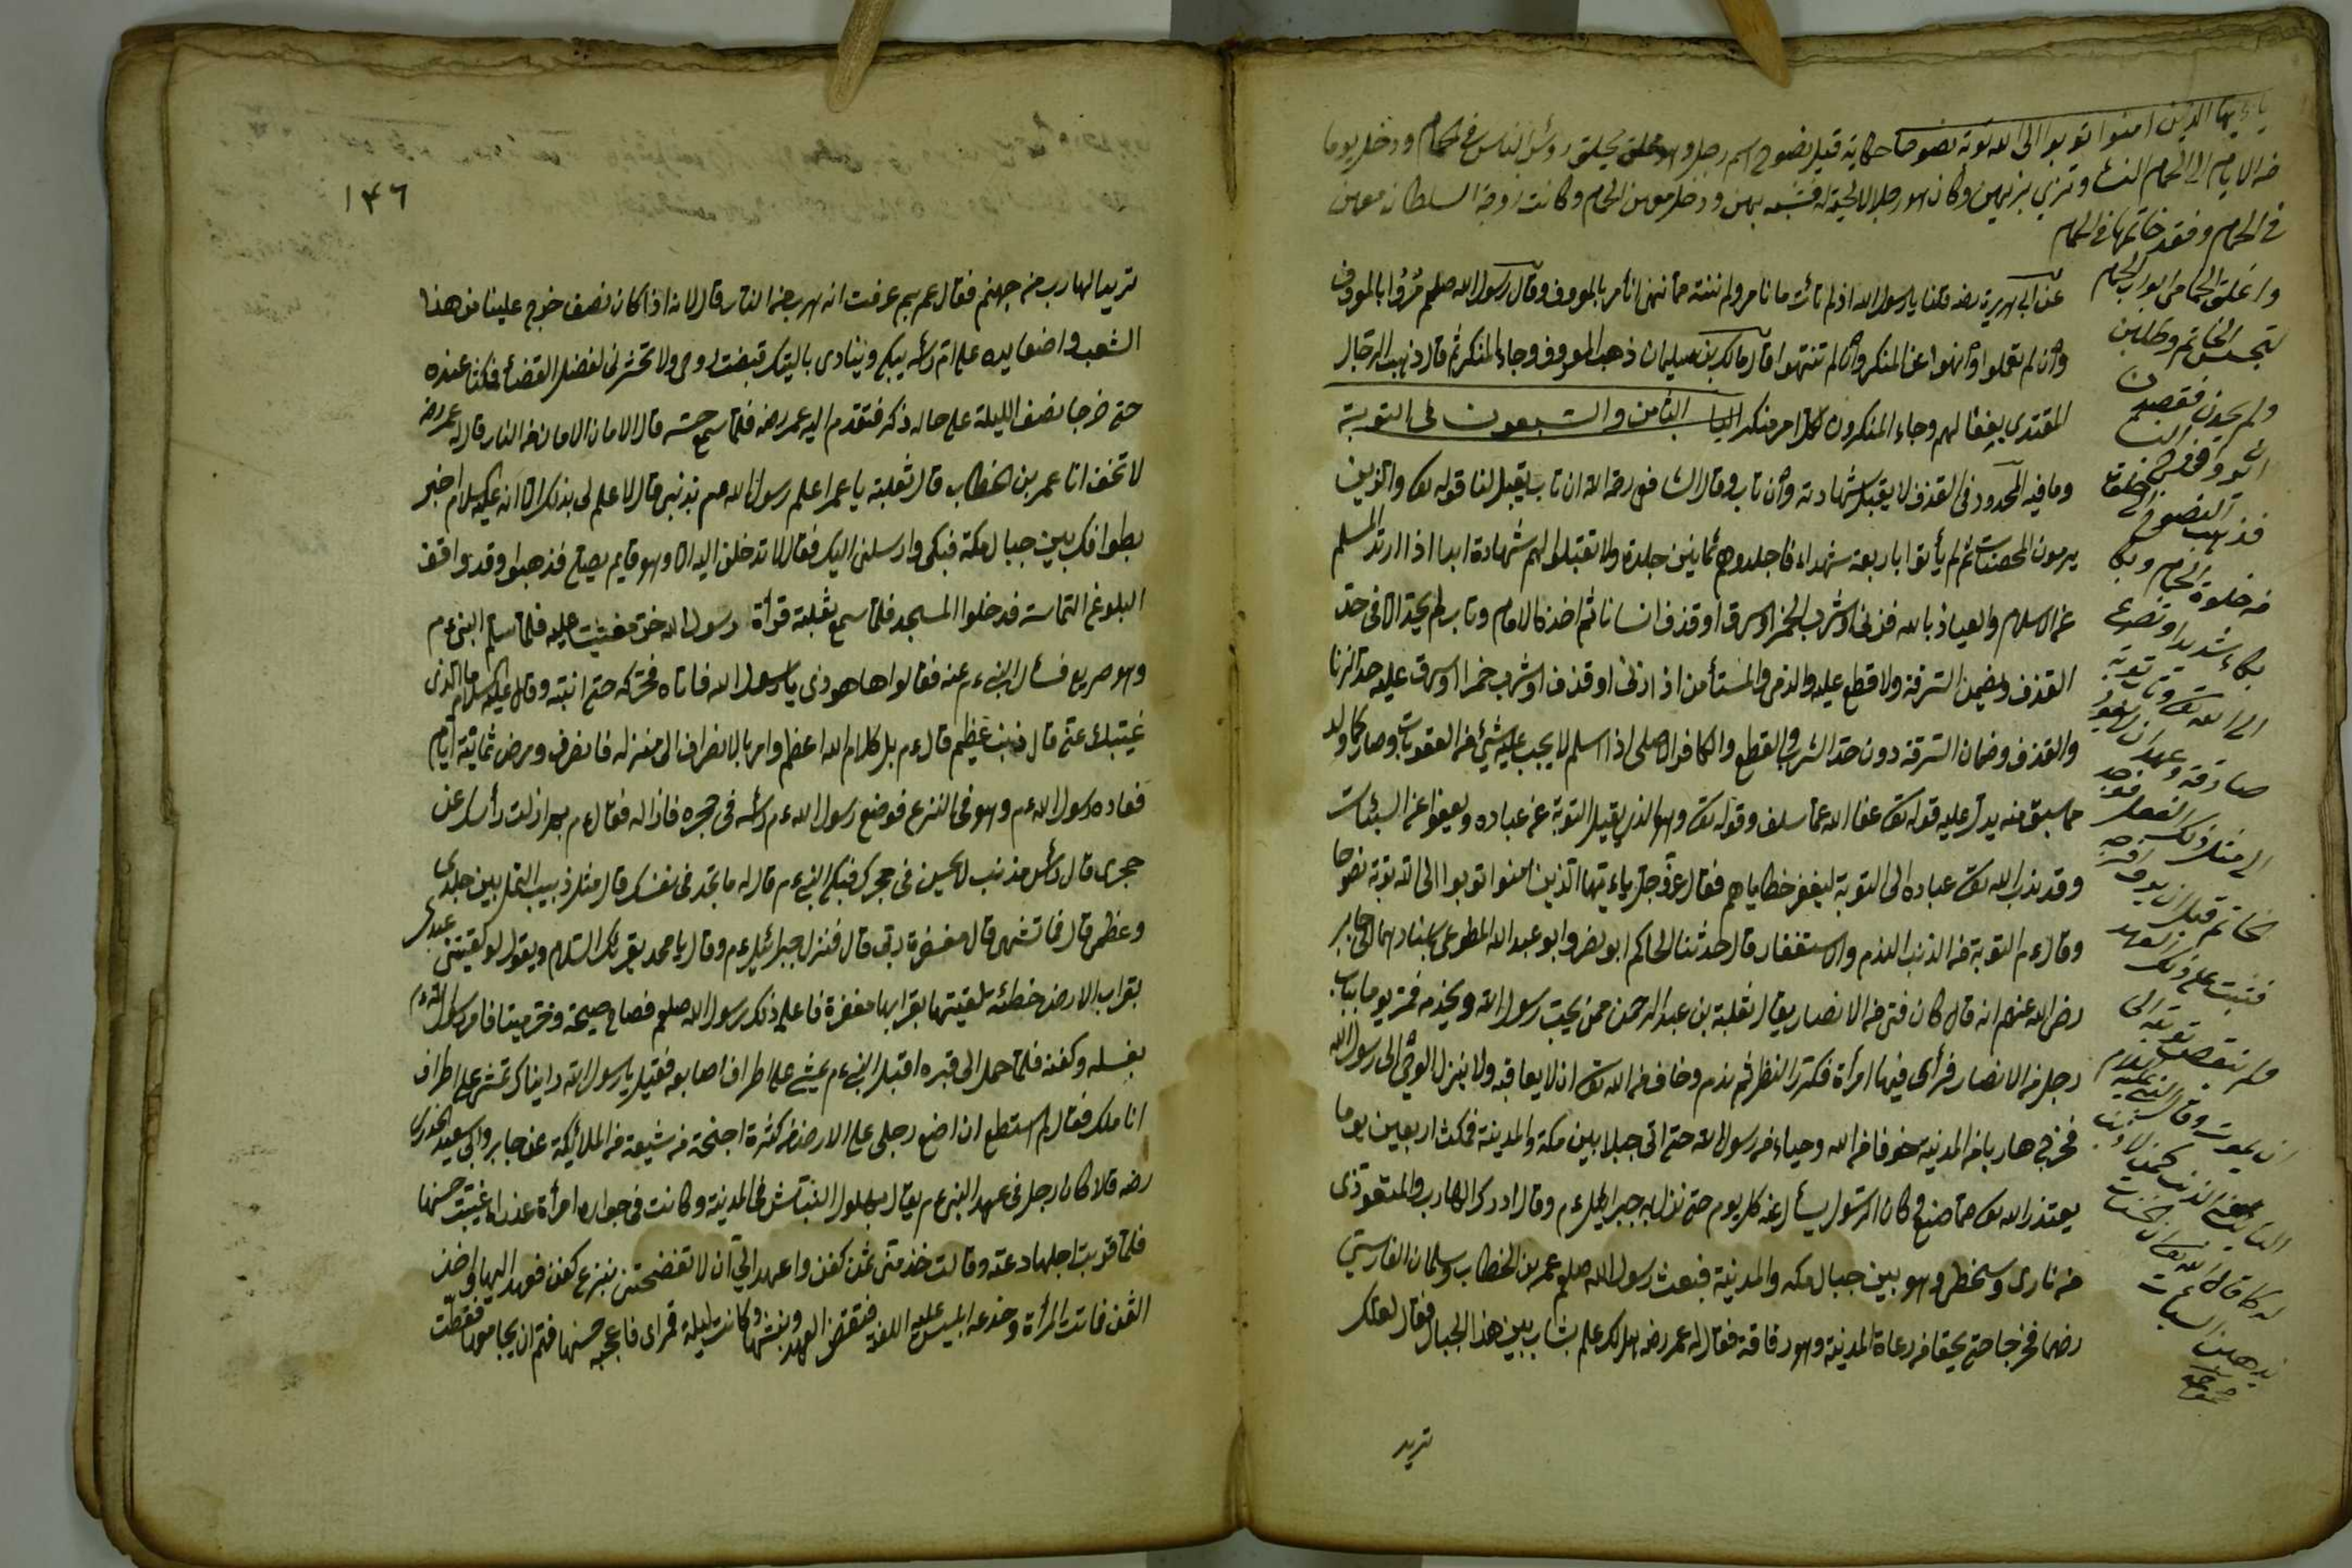 ياءيها الذين امنوا توبوا الى الله توبة نصوحا حكاية قيل نصوح اسم رجل وهو يحلق رؤس الناس في الحمام ودخل يوما
من الايام الى الحمام النساء وتزي بزيهن وكان هو رجلا لا لحية له فتشبه بهن ودخل معهن الحمام وكانت زوجة السلطان معهن
في الحمام وفقد خاتمها في الحمام
واغلق الحمامي ابواب الحمام
لتجسس الخاتم وطلبن
ولم يجدن فقصدن
فذهب النصوح
من خلوة الحمام وبكا
بكاء شديدا وتضرع
الى الله تعالى وتاب توبة
صادقة وعهد ان لا يعود
الى مثل ذلك الفعل فوجد
خاتم قبل ان
فثبت على ذلك العهد
ولم ينقص توبته الى
ان يموت وقال النبي عليه السلام
التائب من الذنب كمن لا ذنب
له كما قال الله تعالى ان الحسنات
يذهبن السيئات
عن ابي هريرة رضه قلنا يا رسول الله اذ لم نأت ما نامر ولم ننته مما ننهى انأمر بالمعروف وقال رسول الله صلعم مروا بالمعروف
وان لم تعملوا وانهوا عن المنكر وان لم تنتهوا قال مالك بن سليمان ذهب المعروف وجاء المنكر ثم قال ذهب الرجال
المقتدى بفعالهم وجاء المنكرون لكل امر منكر الباب الثامن والسبعون في التوبة
وما فيه المحدود في القذف لا يقبل شهادته وان تاب وقال الشافعي رحمة الله ان تاب يقبل لنا قوله تع والذين
يرمون المحصنات ثم لم يأتوا باربعة شهداء فاجلدوهم ثمانين جلدة ولا تقبلوا لهم شهادة ابدا اذا ارتد المسلم
عن الاسلام والعياذ بالله فزنى او شرب الخمر او سرق او قذف انسانا ثم اخذ الامام وتاب لم يحد الا في حد
القذف ويضمن السرقة ولا قطع عليه والذمي والمستأمن اذا زنى او قذف او شرب خمرا او سرق عليه حد الزنا
والقذف وضمان السرقة دون حد الشرب والقطع والكافر الاصلي اذا اسلم لا يجب عليه شيئ من العقوبات وصار كما ولد
مما سبق منه يدل عليه قوله تع عفا الله عما سلف وقوله تع وهو الذي يقبل التوبة عن عباده ويعفوا عن السيئات
وقد ندب الله تع عباده الى التوبة ليغفر خطاياهم فقال عز وجل ياءيتها الذين امنوا توبوا الى الله توبة نصوحا
وقال ءم التوبة من الذنب الندم والاستغفار قال حدثنا الحاكم ابو نصر وابو عبد الله المطوعي باسنادهما الى جابر
رضى الله عنهم انه قال كان فتى من الانصار يقال ثعلبة بن عبد الرحمن ممن يحب رسول الله ويخدمه فمر يوما بباب
رجل من الانصار فرأى فيها امرأة فكرر النظر ثم ندم وخاف من الله تع ان لا يعاقبه ولا ينزل الوحي الى رسول الله
فخرج هاربا من المدينة خوفا من الله وحياء من رسول الله حتى اتى جبلا بين مكة والمدينة فمكث اربعين يوما
يعتذر الله تع مما صنع وكان الرسول يسأل عنه كل يوم حتى نزل به جبرائيل ءم وقال ادرك الهارب والمتعوذ ى
من نارى وسخطي وهو بين جبال مكه والمدينة فبعث رسول الله صلعم عمر بن الخطاب وسلمان الفارسي
رضهما فخرجا حتى لحقا من رعاة المدينة وهو رفاقة فقال له عمر رضه هل لك علم بشاب بين هذا الجبال فقال لعلك
تريد
١٤٦
تريد الهارب من جهنم فقال عمر بم عرفت انه هرب من النار قال لانه اذا كان نصف خرج علينا من هذا
الشعب واضعا يده على ام رأسه يبكي وينادى ياليتك قبضت روحى ولا تحشرني لفصل القضاء فمكثا عنده
حتى خرجا نصف الليلة على حاله ذكر فتقدم اليه عمر رضه فلما سمع حسه قال الامان الامان من النار قال له عمر رضه
لا تخف انا عمر بن الخطاب قال ثعلبة يا عمر اعلم رسول الله صم بذنبي قال لا علم لى بذلك الا انه عليه السلام اخبر
بطوافك بين جبال مكة فبكى وارسلنى اليك فقال لا تدخلن اليه الا وهو قايم يصلح فذهبوا وقد وافق
البلوغ التماسه فدخلوا المسجد فلما سمع ثعلبة قرأة رسول الله خر مغشيا عليه فلما سلم النبي ءم
وهو صريع فسأل النبي ءم عنه فقالوا ها هو ذى يا رسول الله فاتاه فحركه حتى انتبه وقال عليه السلام ما الذى
غيبك عنى قال ذنب عظيم قال ءم بل كلام الله اعظم وامر بالانصراف الى منزله فانصرف ومرض ثمانية ايام
فعاده رسول الله ءم وهو في النزع فوضع رسول الله ءم رأسه فى حجره فازاله فقال ءم بم ازلت رأسك عن
حجرى قال رأس مذنب لا يحسن فى حجرك فبكى النبي ءم قال له ما تجد فى نفسك قال مثل ذبيب النمل بين جلدى
وعظمى قال فما تشتهى قال مغفرة ربى قال فنزل جبرائيل ءم وقال يا محمد يقرئك السلام ويقول لو لقيتنى عبدى
بقراب الارض خطئة تلقيتها بقرابها مغفرة فاعلم ذلك رسول الله صلعم فصاح صيحة وخر ميتا فامر رسول الله ءم
بغسله وكفنه فلما حمل الى قبره اقبل النبي ءم يمشى على اطراف اصابعه فقيل يا رسول الله رايناك تمشى على اطراف
اناملك فقال لم استطع ان اضع رجلى على الارض من كثرة اجنحة من شيعه من الملائكة عن جابر وابي سعيد الخدرى
رضه قالا كان رجل فى عهد النبي ءم يقال بهلول النباش فى المدينة وكانت فى جواره امرأة عذراء حسنها
فلما قربت اجلها دعته وقالت خذ منى ثمن كفن واعهد الى ان لا تفضحني بنزع كفنى فعهد اليها واخذ
الثمن فماتت المرأة وخدعه ابليس عليه اللعنة فنقض العهد ونبشها وكانت ليلة قمراى فاعجبه حسنها فهم ان يجامعها